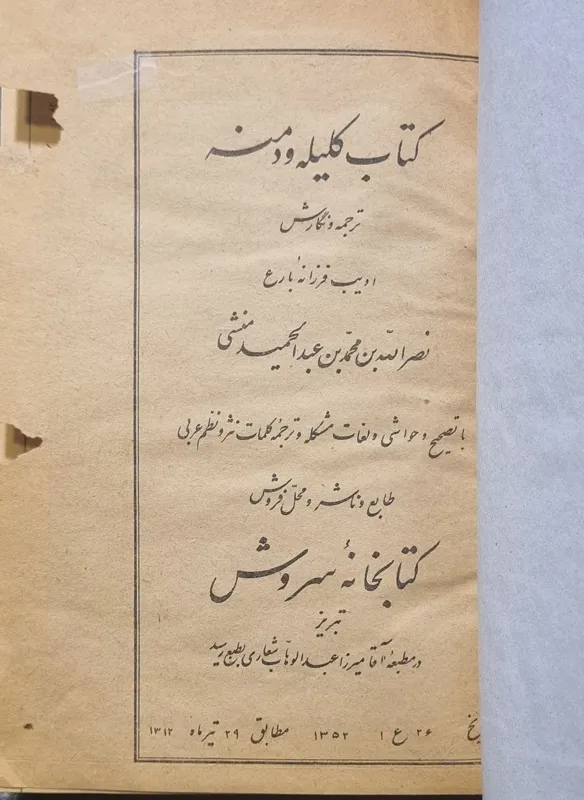 کتاب کلیله و دمنه
ترجمه و نگارش
ادیب فرزانهٔ بارع
نصرالله بن محمد بن عبدالحمید منشی
با تصحیح و حواشی و لغات مشکله و ترجمه کلمات نثر و نظم عربی
طابع و ناشر و محل فروش
کتابخانهٔ سروش
تبریز
در مطبعه آقا میرزا عبدالوهاب شعاری بطبع رسید
۲۶ ع ۱ ۱۳۵۲ مطابق ۲۹ تیرماه ۱۳۱۲